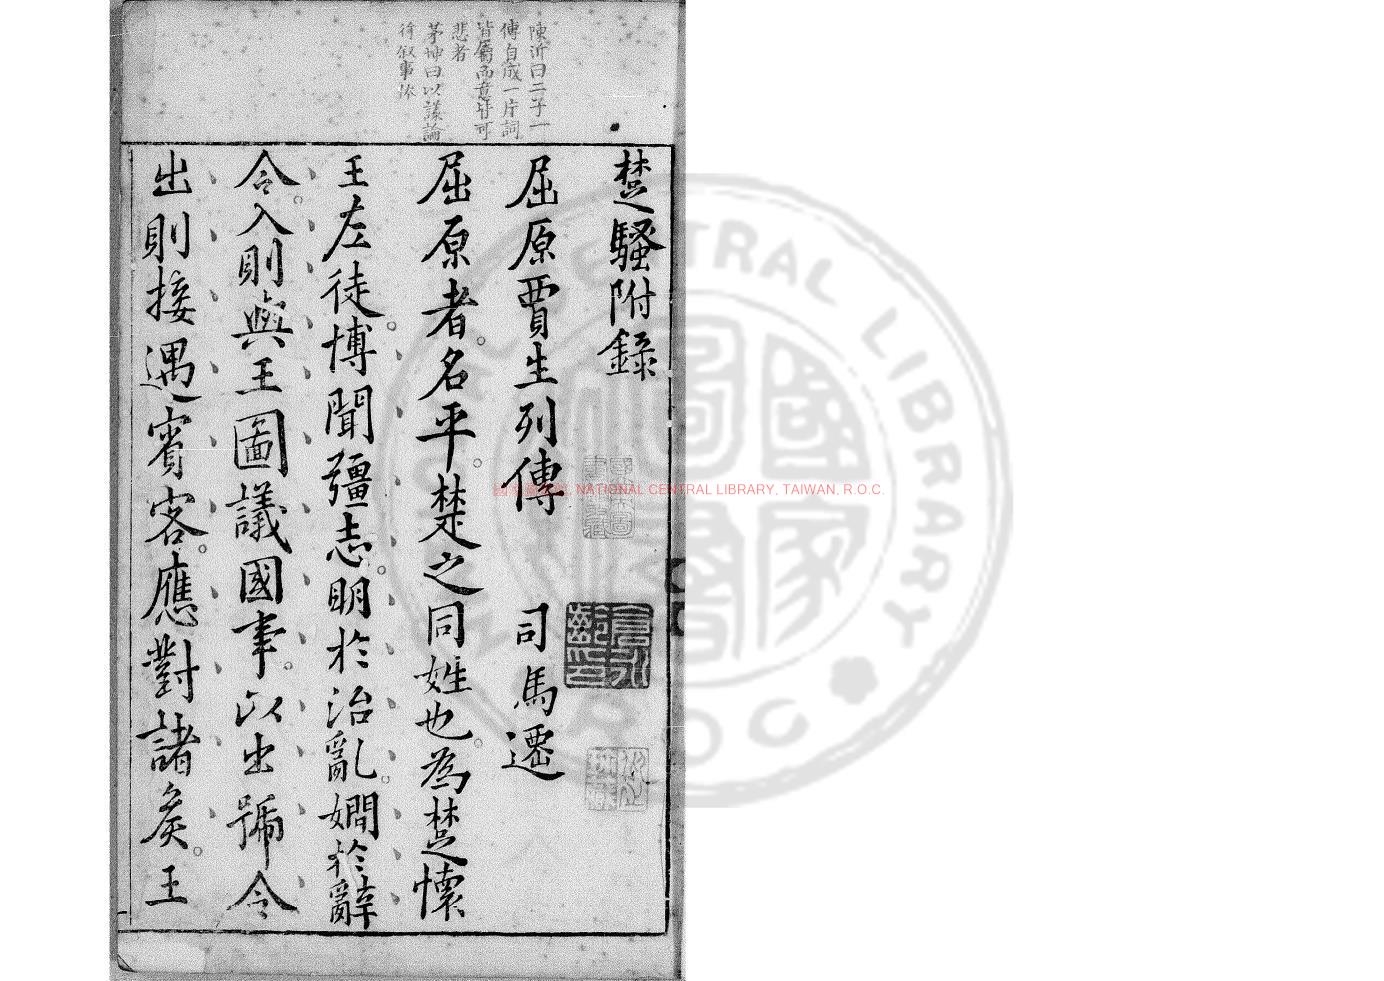 楚騷附錄
屈原賈生列傳 司馬遷
屈原者。名平。楚之同姓也。為楚懷
王左徒。博聞彊志。明於治亂。嫺於辭
令。入則與王圖議國事。以出號令
出則接遇賓客。應對諸矦。王
陳沂曰二子一
傳自成一片詞
皆屬而意皆可
悲者
茅坤曰以議論
行叙事体
NATIONAL CENTRAL LIBRARY, TAIWAN, R.O.C.
CENTRAL LIBRARY